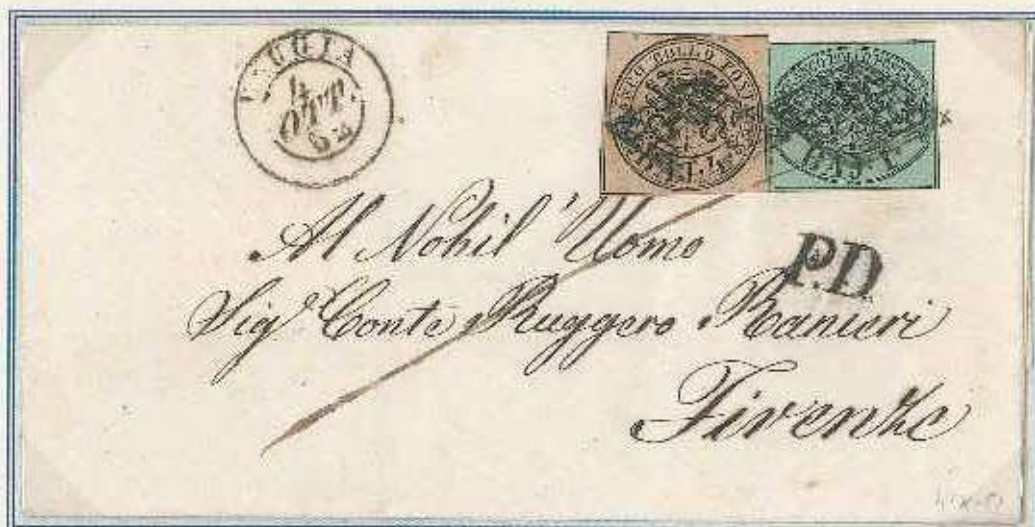 4
OTT.
FRANCO BOLLO
BAJ. 1
P.D.
Al Nobil' Uomo
Sig.r Conte Ruggero Ranieri
Firenze